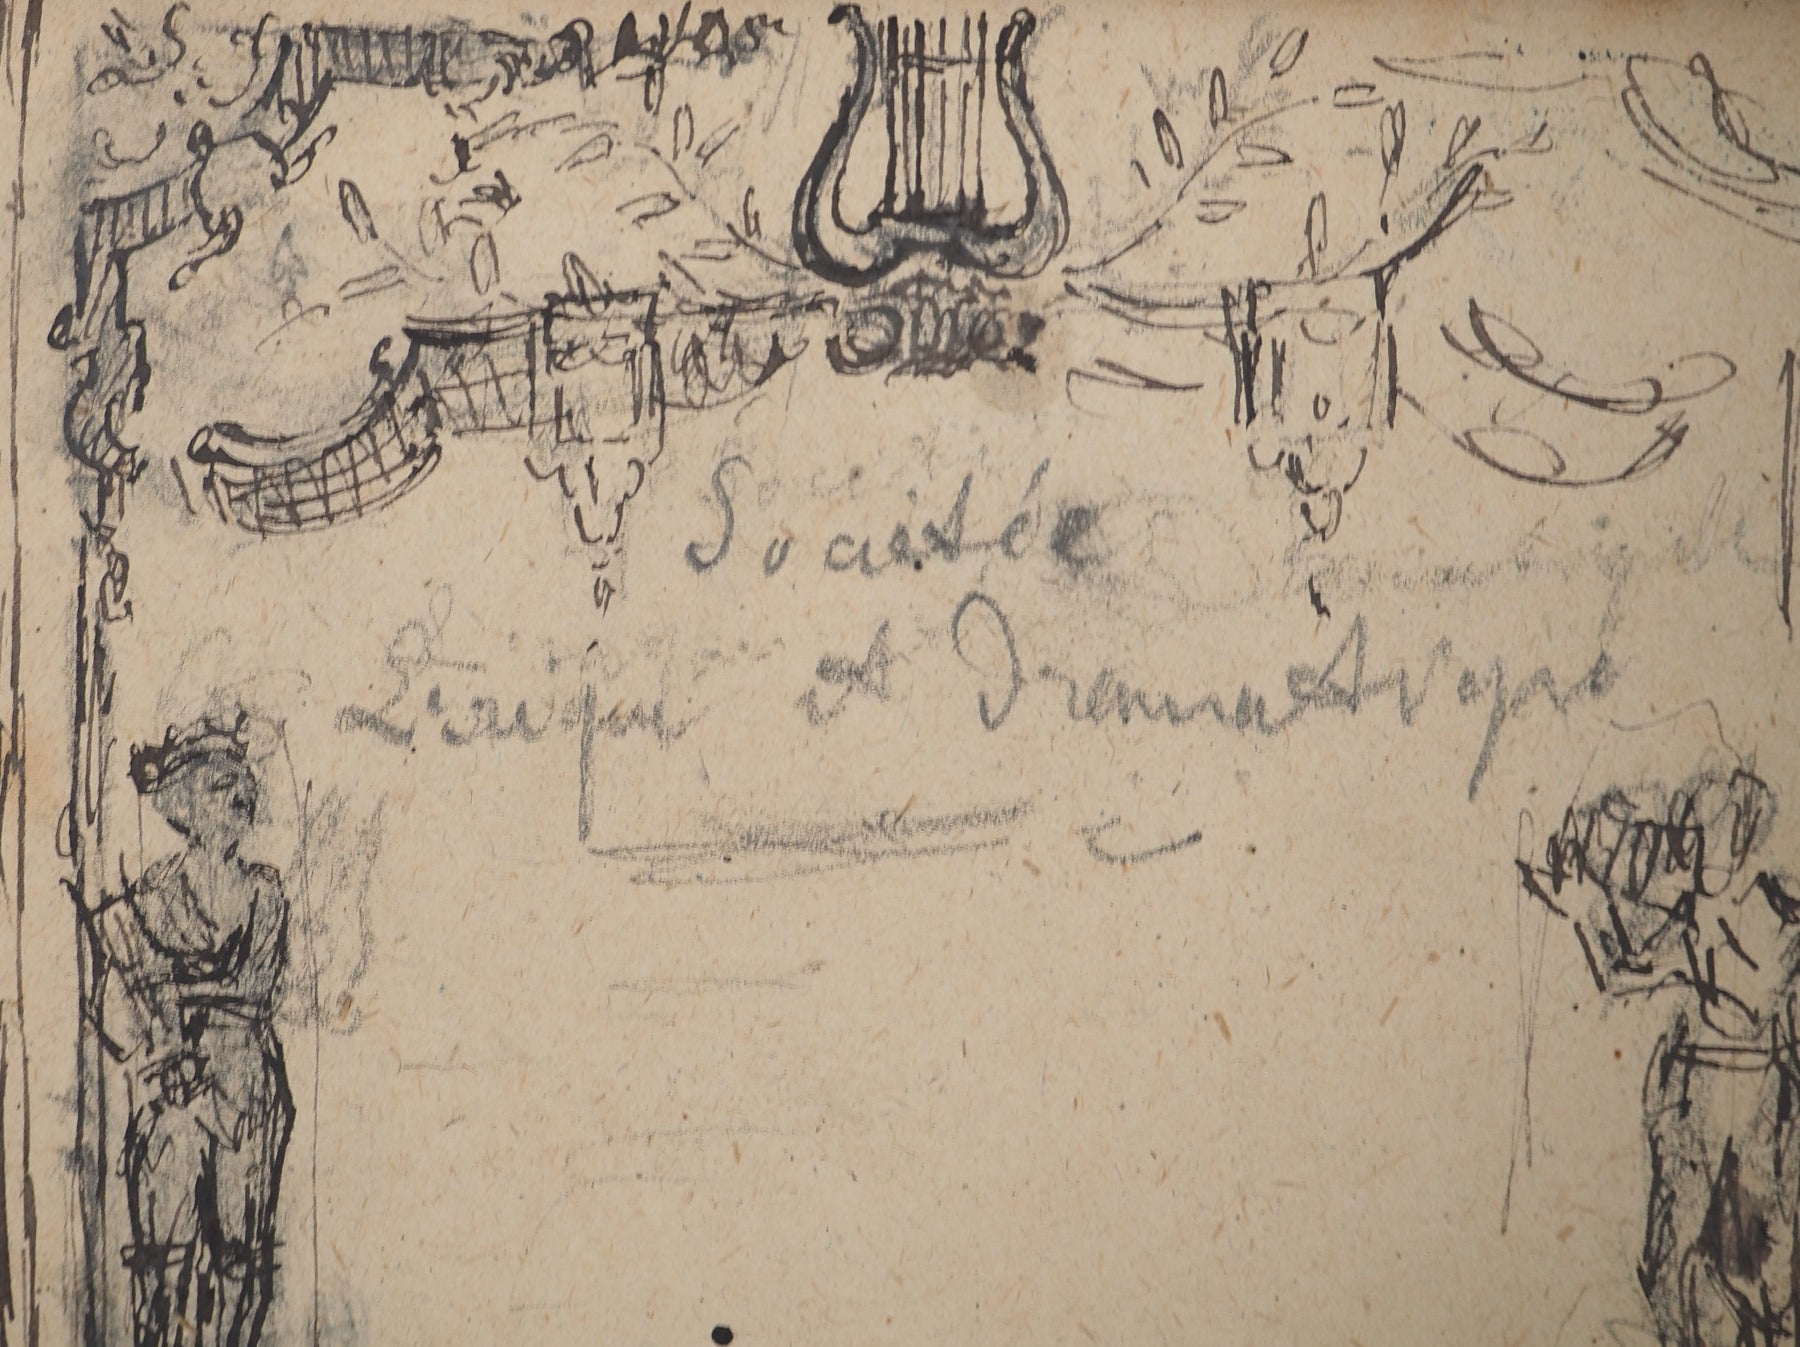 Societée
Lirique et Dramatique